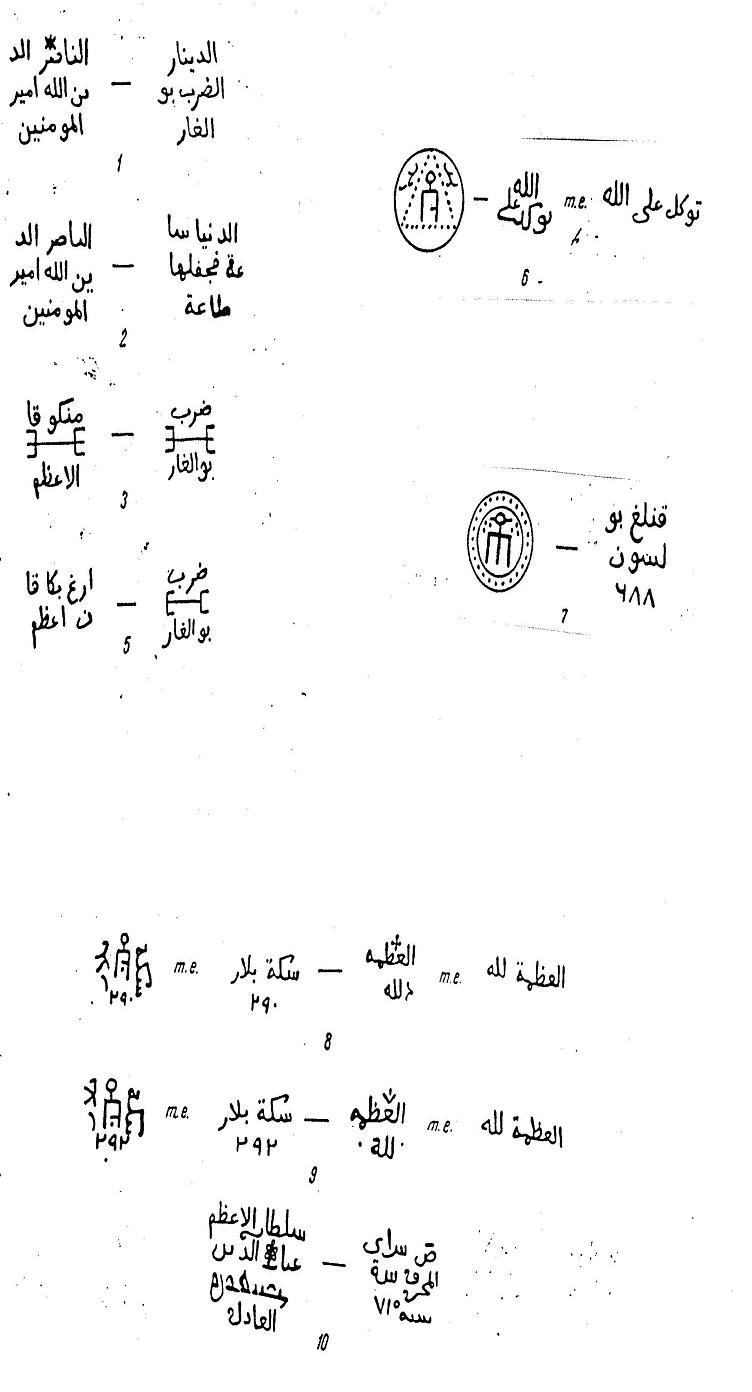 الناصر الد — الدينار
ين الله امير الضرب بو
المومنين الغار
1
الناصر الد — الدنيا سا
ين الله امير عة فجعلها
المومنين طاعة
2
منكو قا — ضرب
الاعظم بوالغار
3
ارغ بكا قا — ضرب
ن اعظم بوالغار
5
— الله m.e. توكل على الله
توكلت على
6
— قتلغ بو
لسون
٦٨٨
7
m.e. سكة بلار — العظمه m.e. العظمة لله
٢٩٠ ٢٩٠ لله
8
m.e. سكة بلار — العظمه m.e. العظمة لله
٢٩٢ ٢٩٢ لله
9
سلطان الاعظم — ض سراى
الدين المحروسة
العادل سنه ٧١٠
10